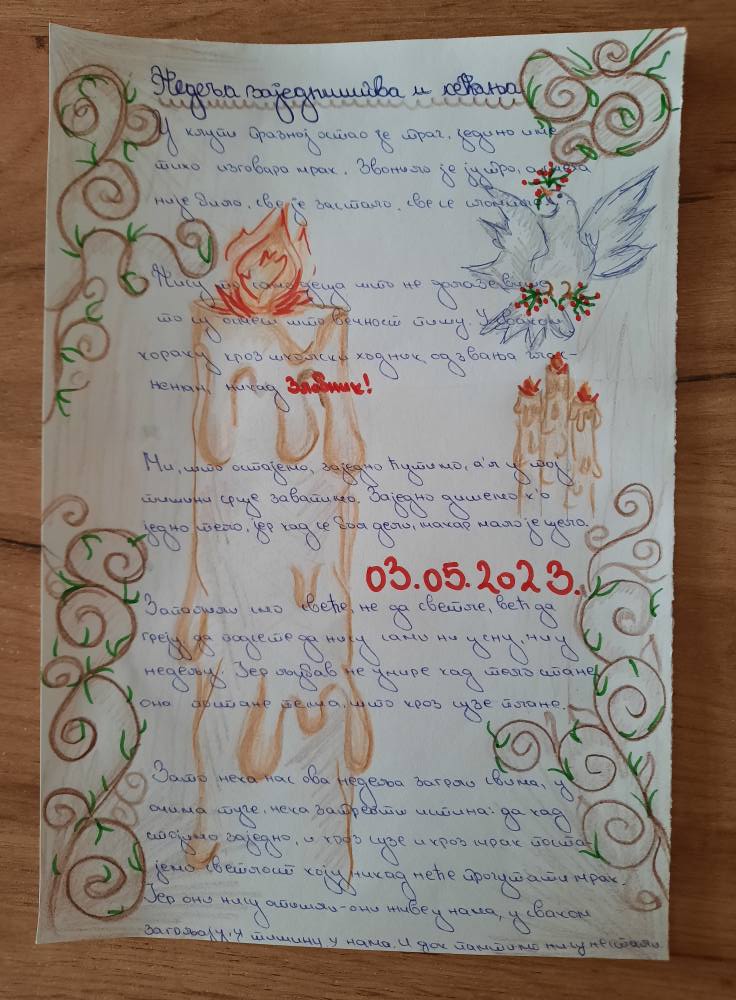 Недеља заједништва и сећања
У клупи празној остао је траг, једино име
тихо изговара мрак. Звонило је јутро, а
није било, све је застало, све се
Нису то само деца што не долазе више
то су анђели што вечност пишу. У сваком
кораку кроз школски ходник, одзвања
никад Заборав!
Ми, што остајемо, заједно ћутимо, а'л у тој
тишини срце заватимо. Заједно дишемо к'о
једно тело, јер кад се бол дели, макар мало је цело.
03.05.2023.
Запалили смо свеће, не да светле, већ да
греју, да подсете да нису сами ни у сну, ни у
недељу. Јер љубав не умире кад тело стане,
она постане песма, што кроз сузе плане.
Зато нека нас ова недеља загрли свима, у
очима туге, нека затрепти истина: да кад
стојимо заједно, и кроз сузе и кроз мрак поста
јемо светлост коју никад неће прогутати мрак.
Јер они нису отишли-они живе у нама, у сваком
загрљају, у тишини у нама. И док памтимо нису нестали